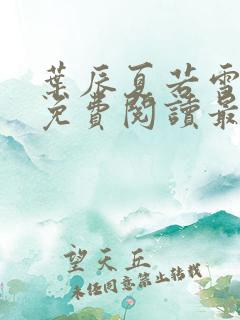 葉辰夏若雪
免費閱讀最
望天丘
未經同意禁止轉載